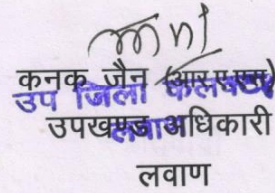 कनक जैन (आर.ए.एस)
उप जिला कलक्टर
उपखण्ड अधिकारी
लवाण
लवाण